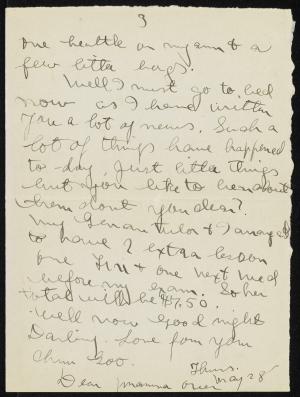 3
one health on my arm & a
few little bags.
Well I must go to bed
now as I have written
you a lot of news. Such a
lot of things have happened
to-day. Just little things
but you like to hear about
them dont you dear?
My German tutor & I
to have 2 extra lesson
one Fri & one next Wed
before my exam. So her
total will be $7.50.
Well now good night
Darling. Love from your
Chum
Thurs.
May 28
Dear mamma